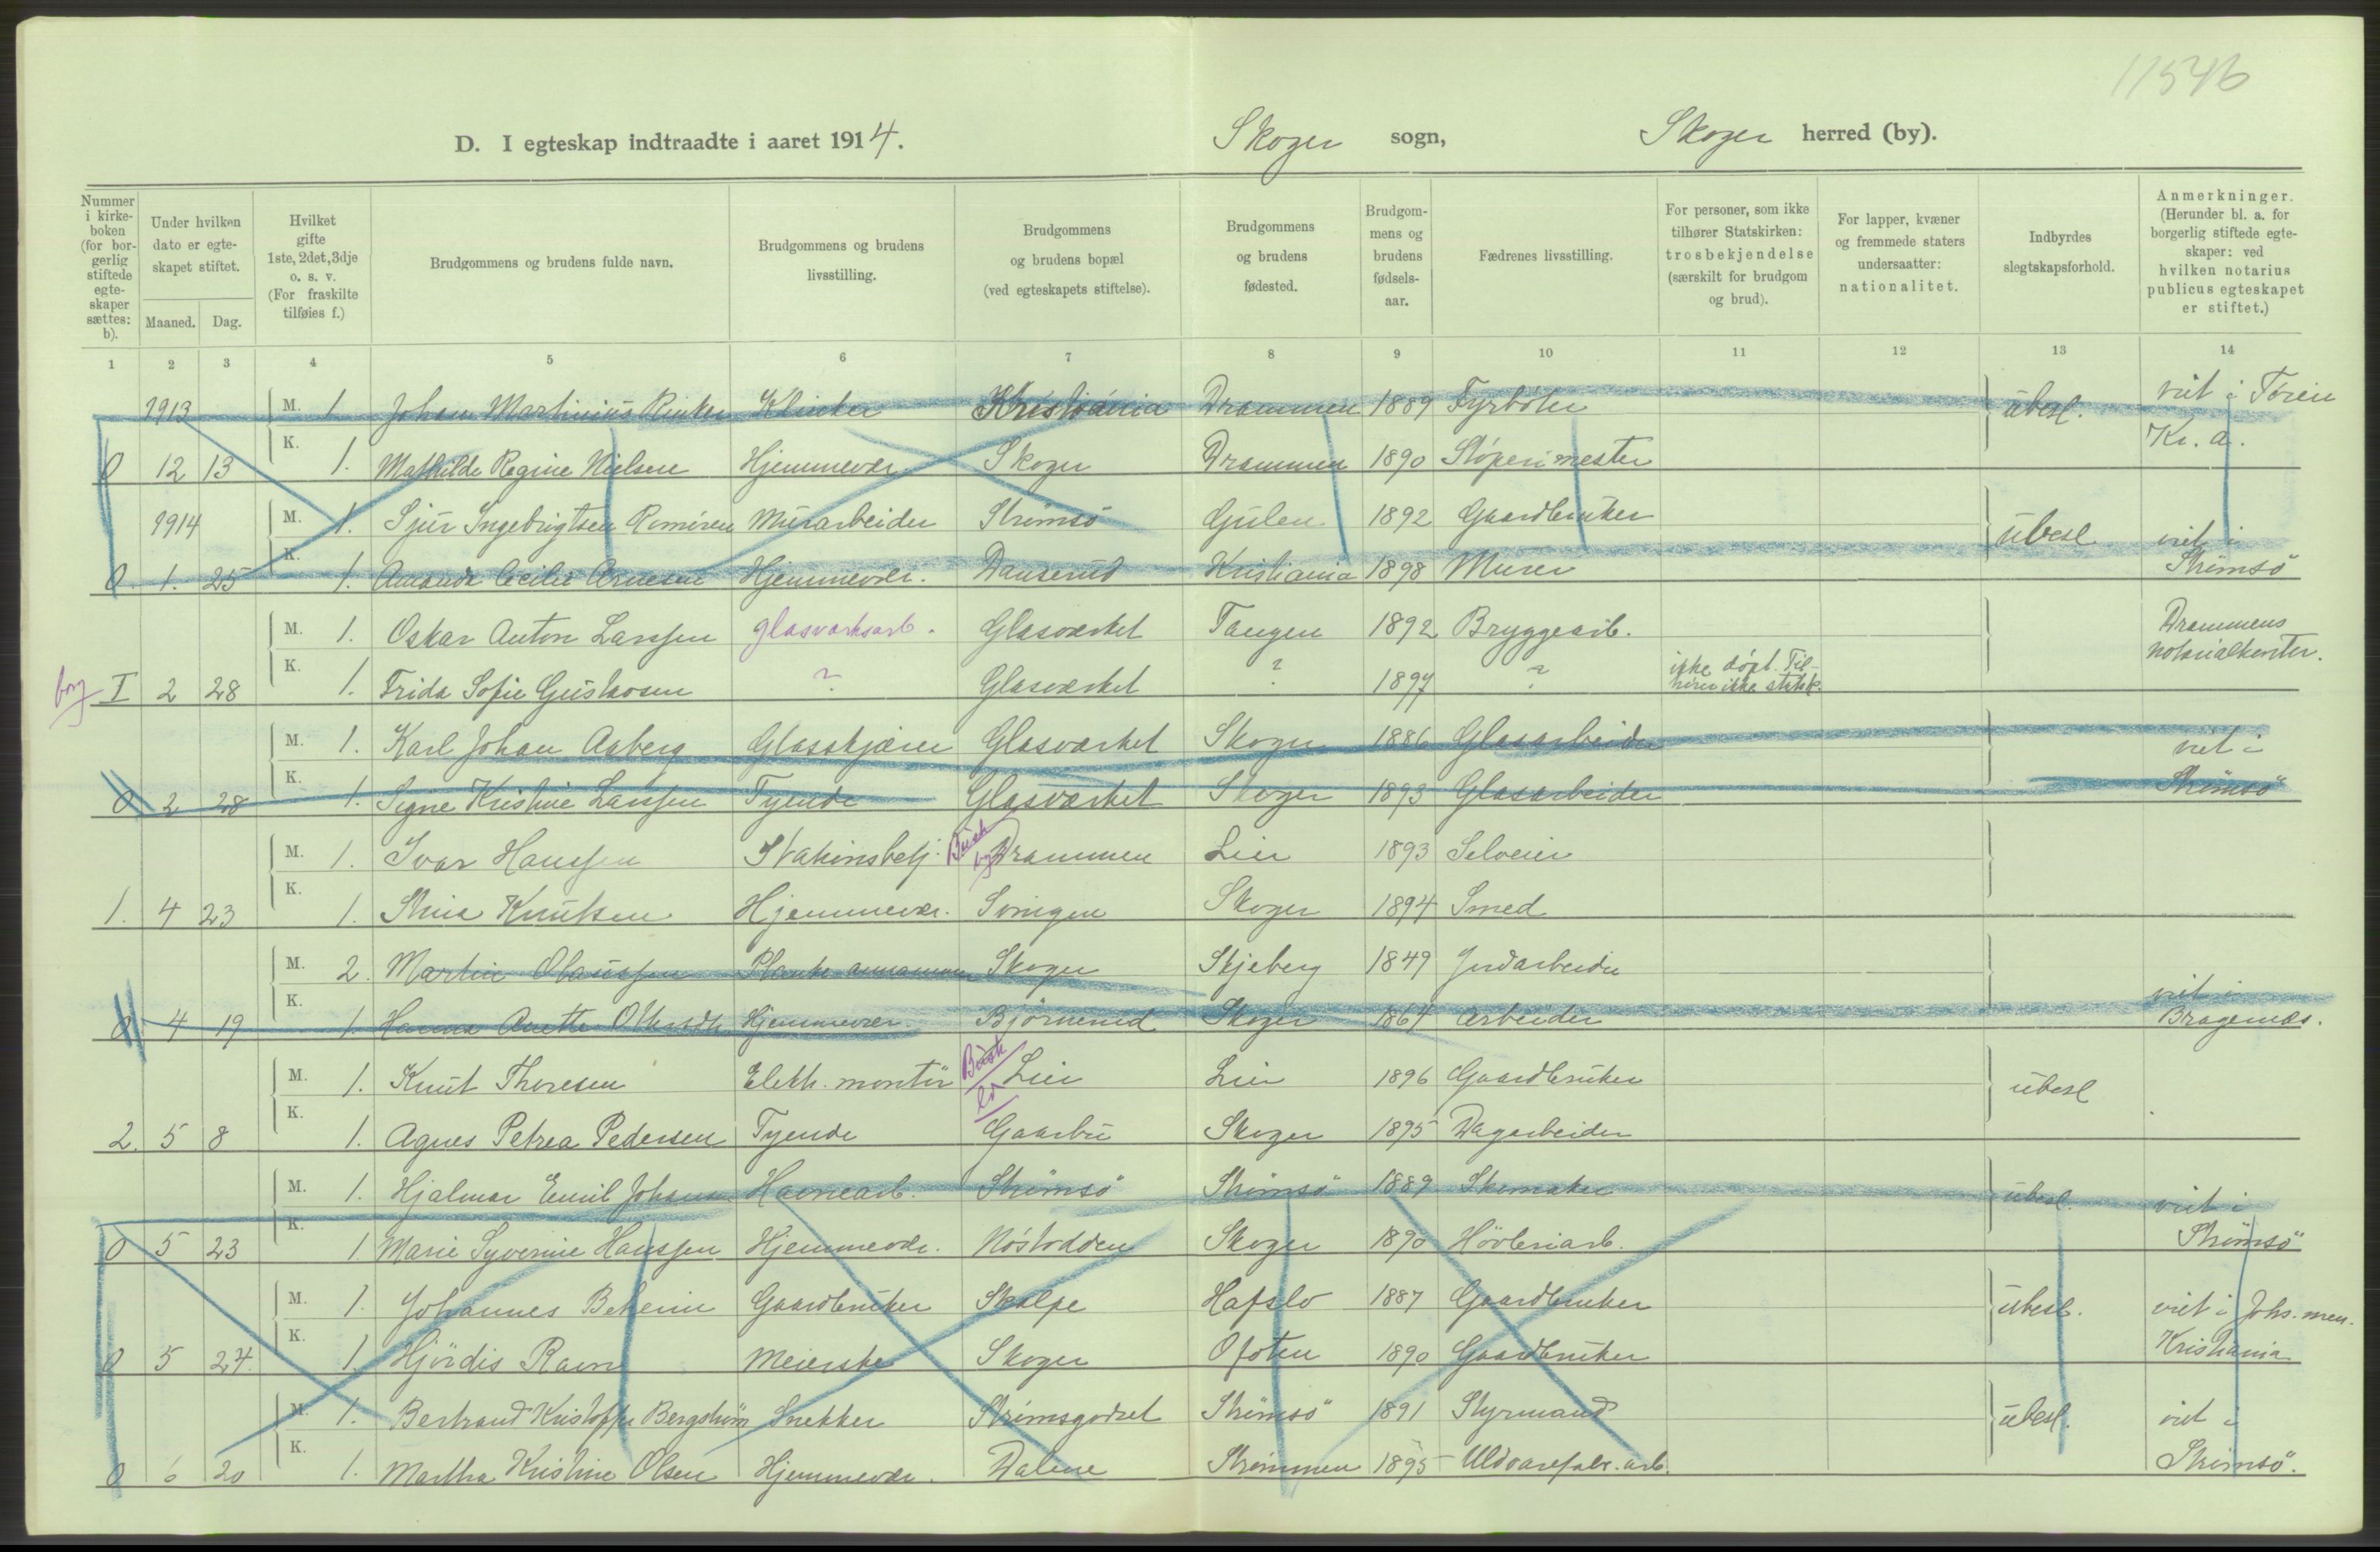 11546
D. I egteskap indtraadte i aaret 1914.
Skoger sogn, Skoger herred (by).
Nummer i kirkeboken (for borgerlig stiftede egteskaper sættes: b).
Under hvilken dato er egteskapet stiftet.
Maaned. Dag.
Hvilket gifte 1ste, 2det, 3dje o. s. v. (For fraskilte tilføies f.)
Brudgommens og brudens fulde navn.
Brudgommens og brudens livsstilling.
Brudgommens og brudens bopæl (ved egteskapets stiftelse).
Brudgommens og brudens fødested.
Brudgommens og brudens fødselsaar.
Fædrenes livsstilling.
For personer, som ikke tilhører Statskirken: trosbekjendelse (særskilt for brudgom og brud).
For lapper, kvæner og fremmede staters undersaatter: nationalitet.
Indbyrdes slegtskapsforhold.
Anmerkninger. (Herunder bl. a. for borgerlig stiftede egteskaper: ved hvilken notarius publicus egteskapet er stiftet.)
1 2 3 4 5 6 7 8 9 10 11 12 13 14
1913 M. 1 Johan Martinius Kristiania Drammen 1889 Fyrbøter ubesl. viet i
0 12 13 K. 1. Mathilde Regine Nielsen Hjemmevær. Skoger Drammen 1890 Støperimester Kr. a.
1914 M. 1. Sjur Ingebrigtsen Murarbeider Strømsø Gulen 1892 Gaardbruker ubesl viet i
0. 1. 25 K. 1. Amanda Cecilie Arnesen Hjemmevær. Danserud Kristiania 1898 Murer Strømsø
M. 1. Oskar Anton Larssen glasværksarb. Glasværket Tangen 1892 Bryggearb. Drammens notarialkontor.
borg I 2 28 K. 1. Frida Sofie Gustavsen ? Glasværket ? 1897 ? ikke døpt. Tilhører ikke statsk.
M. 1. Karl Johan Aaberg Glasskjærer Glasværket Skoger 1886 Glasarbeider viet i
0 2 28 K. 1. Signe Kristine Larssen Tyende Glasværket Skoger 1893 Glasarbeider Strømsø
M. 1. Ivar Hanssen Stationsbetj. Busk by Drammen Lier 1893 Selveier
1. 4 23 K. 1. Stina Knutsen Hjemmevær. Svingen Skoger 1894 Smed
M. 2. Martin Olaussen Planke Skoger Skjeberg 1849 Jordarbeider viet i
0 4 19 K. 1. Hanna Anette Hjemmevær. Bjørnerud Skoger 1864 arbeider Bragernæs.
M. 1. Knut Thoresen Elektr. montør Busk Lier Lier 1896 Gaardbruker ubesl
2. 5 8 K. 1. Agnes Petrea Pedersen Tyende Gaarbu Skoger 1895 Dagarbeider
M. 1. Hjalmar Emil Johansen Havnearb. Strømsø Strømsø 1889 Skomaker ubesl. viet i
0 5 23 K. 1. Marie Syverine Hanssen Hjemmevær. Nøstodden Skoger 1890 Høvleriarb. Strømsø
M. 1. Johannes Beheim Gaardbruker Skalpe Hafslo 1887 Gaardbruker ubesl. viet i Johs. men.
0 5 24. K. 1. Hjørdis Ravn Meierske Skoger Ofoten 1890 Gaardbruker Kristiania
M. 1. Bertrand Kristoffer Bergstrøm Snekker Strømsgodset Strømsø 1891 Styrmand ubesl. viet i
0 6 20 K. 1. Martha Kristine Olsen Hjemmevær. Dalene Strømmen 1895 Uldvarefabr. arb. Strømsø.